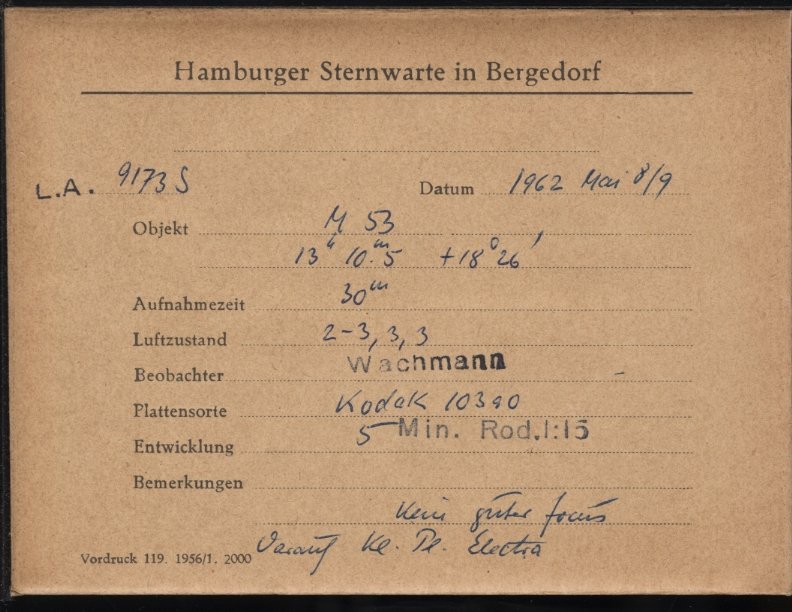 Hamburger Sternwarte in Bergedorf
L.A. 9173 S Datum 1962 Mai 8/9
Objekt M 53
13h 10m.5 +18° 26'
Aufnahmezeit 30m
Luftzustand 2-3, 3, 3
Beobachter Wachmann
Plattensorte Kodak 103a0
Entwicklung 5 Min. Rod.1:15
Bemerkungen
Kein guter focus
Vordruck 119. 1956/1. 2000 Darauf Kl. Pl. Electra